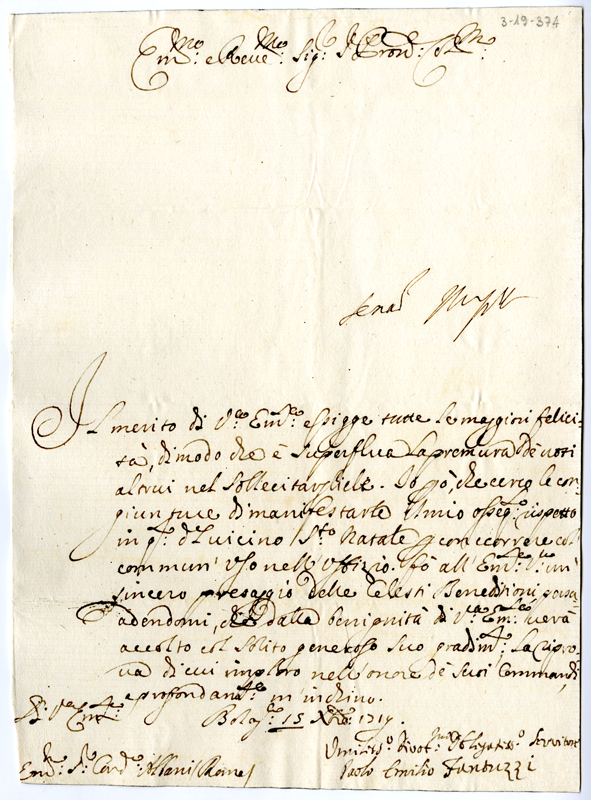 3-19-374
Em.mo e Reue.mo Sig.r Pron. Col.mo
Il merito di V.ra Em.za essigge tutte le maggiori felici-
tà, di modo che è superflua la premura de uoti
altrui nel sollecitargliele. Io però, che cerco le con-
giunture di manifestarle il mio osseq.o rispetto
in q.to del uicino S.to Natale concorrere col
commun' uso nell' Uffizio. Fò all' Em.za V.ra un'
sincero presaggio delle Celesti Benedizioni persu-
adendomi, che dalla benignità di V.ra Em.za uerà
accolto col solito generoso suo gradim.to. La ripro-
ua di cui imploro nell' onore de suoi Commandi,
e profondam.te m' inchino.
Di V.ra Em.za
Bolog.a 15 Xbre 1719.
Umiliss.o Diuot.mo Obligatiss.o Seruitore
Em.mo S.r Card. Albani / Roma /
Paolo Emilio Fantuzzi